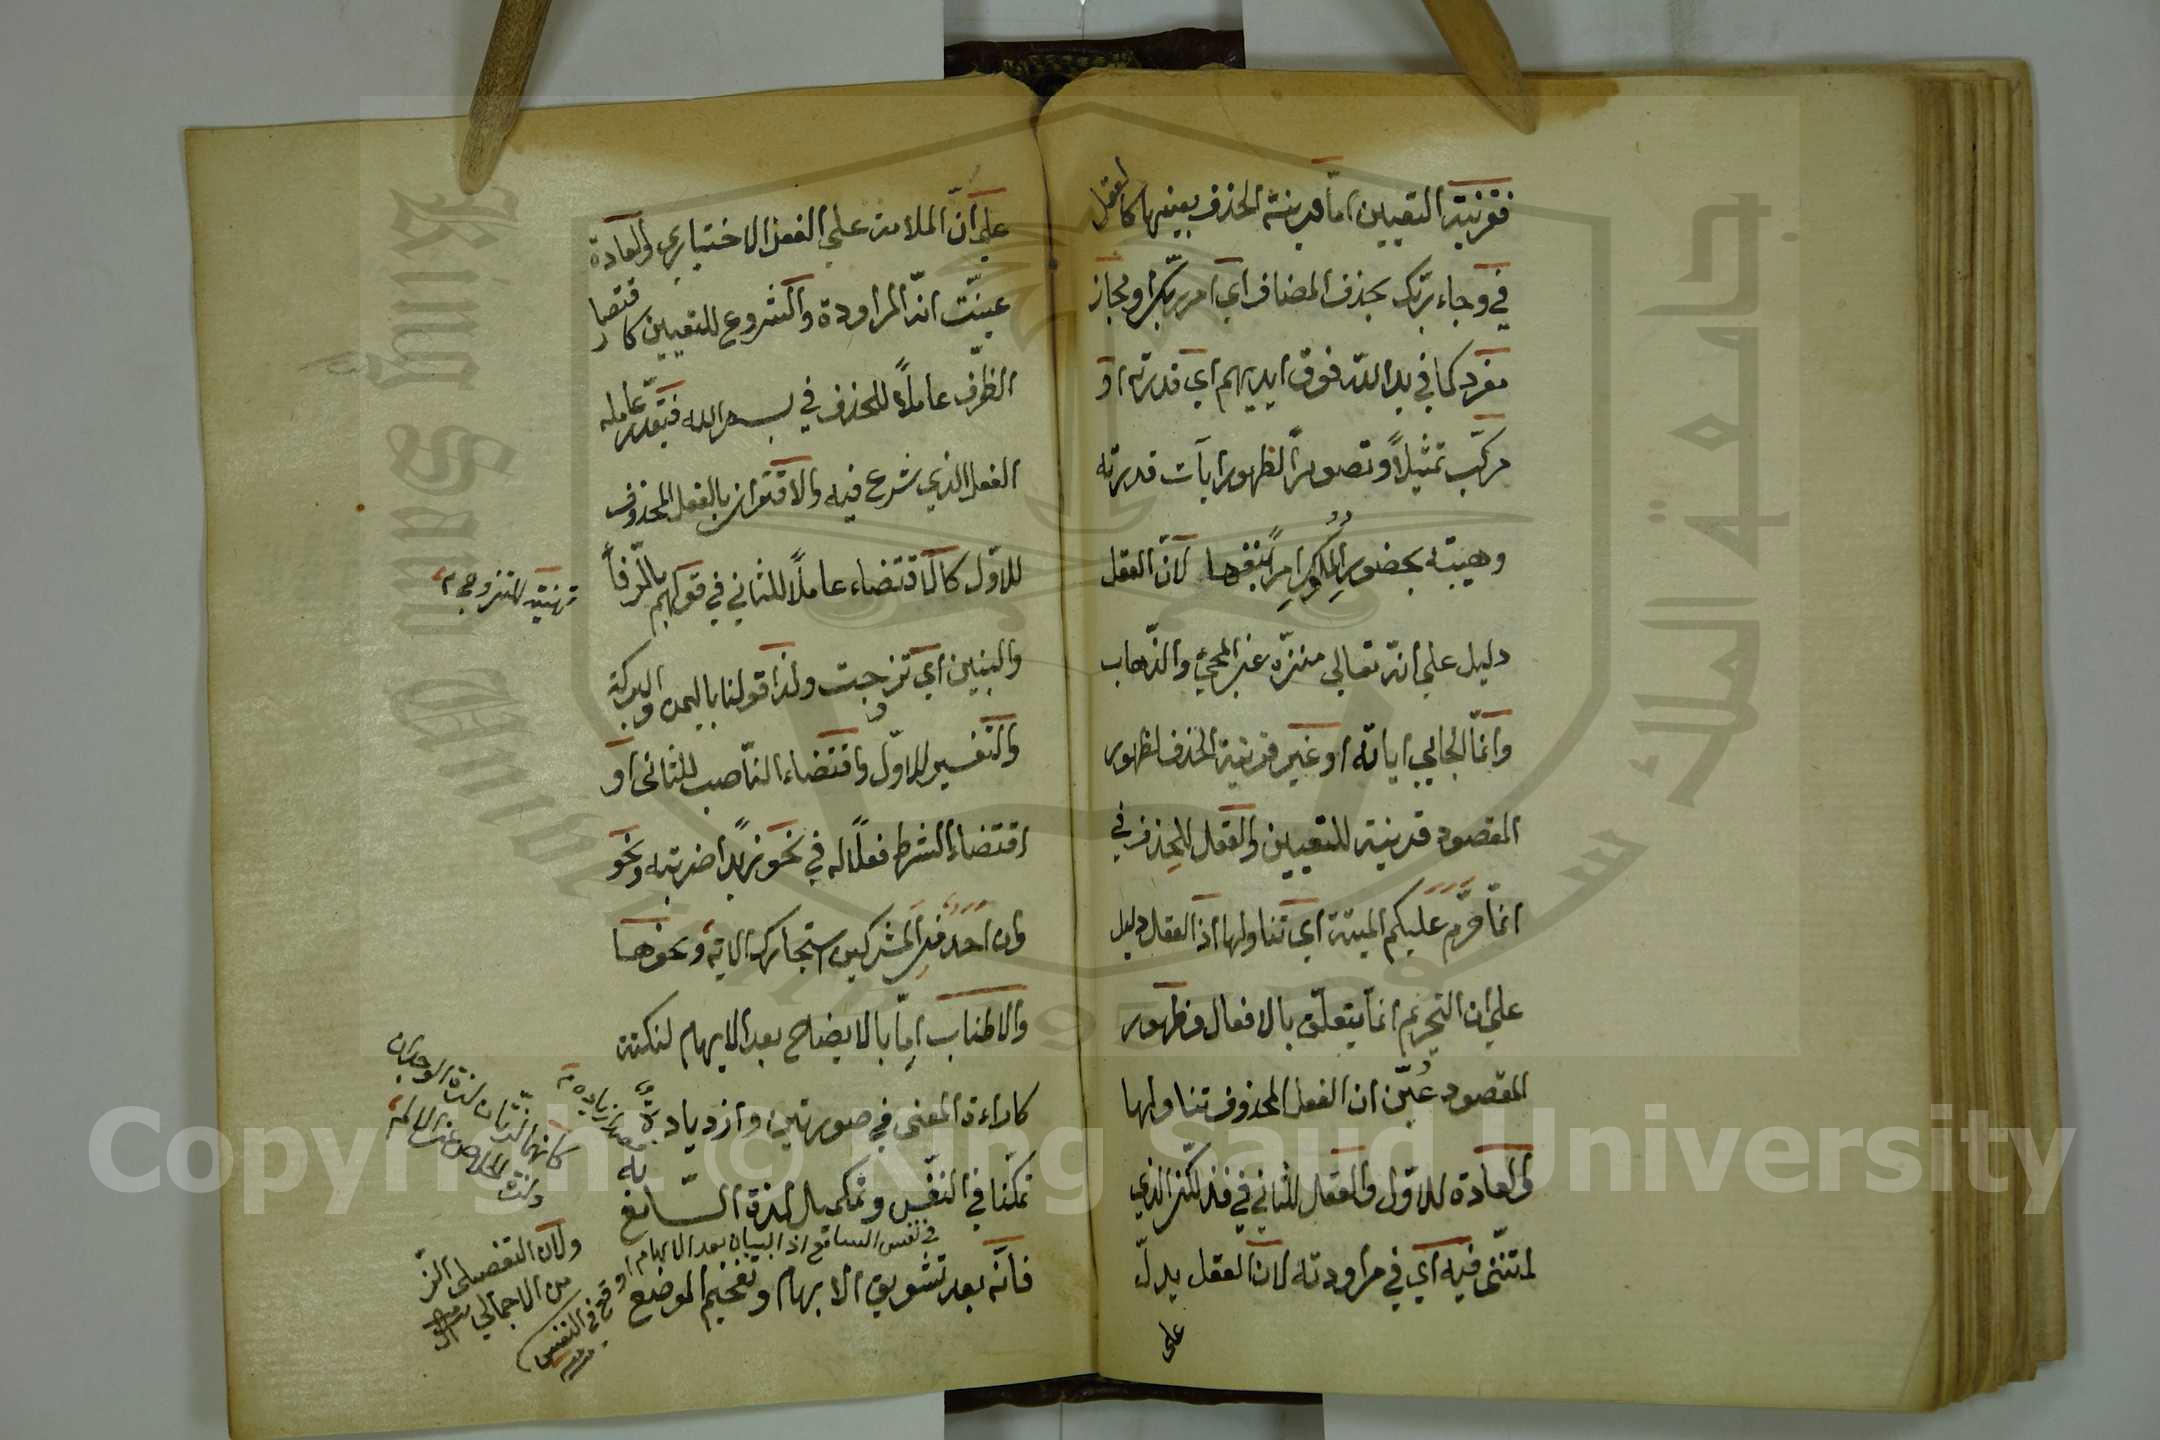 فقرينة التعيين امّا قرينة الحذف بعينها كالعقل
في وجاء ربّك بحذف المضاف اي امر ربّك او مجاز
مفرد كما في يد الله فوق ايديهم اي قدرته او
مركّب تمثيلاً وتصويراً لظهور ايات قدرته
وهيبته بحضور الملوك لانّ العقل
دليل على انّه تعالى منزّه عن المجيء والذّهاب
وانمّا الجائي اياته او غير قرينة الحذف لظهور
المقصود قرينة للتعيين والعقل للحذف في
انمّا حرّم عليكم الميتة اي تناولها اذ العقل دليل
على ان التحريم انمّا يتعلّق بالافعال وظهور
المقصود عُيّن ان الفعل المحذوف تناولها
والعادة للاوّل والعقل للثاني في فذلكنّ الذي
لمتنّني فيه اي في مراودته لانّ العقل يدلّ
على
على انّ الملامة على الفعل الاختياري والعادة
عيّنت انّه المراودة والشروع للتعيين كاقتضاء
الظّرف عاملاً للحذف في بسم الله فيقدّر عامله
الفعل الذي شرع فيه والاقتران بالفعل المحذوف
للاوّل كالاقتضاء عاملاً للثاني في قولهم بالرّفاء
تهنئة للتزوج م
والبنين اي تزوجت وكذا قولنا باليمن والبركة
والتّفسير للاوّل واقتضاء النّاصب للثاني او
اقتضاء الشرط فعلاً له في نحو زيداً ضربته ونحو
وان احد من المشركين استجارك الاية ونحوها
والاطناب امّا بالايضاح بعد الابهام لنكتة
كاراءة المعنى في صورتين وازدياد
تمكّنا في النّفس وتكميل لذة السّامع
في نفس السامع اذ البيان بعد الابهام اوقع في النفس
فانّه بعد تشويق الابهام وتفخيم الموضع
مصدر زياده م
كانّهما لذّتان لذة الوجدان
ولذة الخلاص عن الالم
ولان التفصيلي الذّ
من الاجمالي